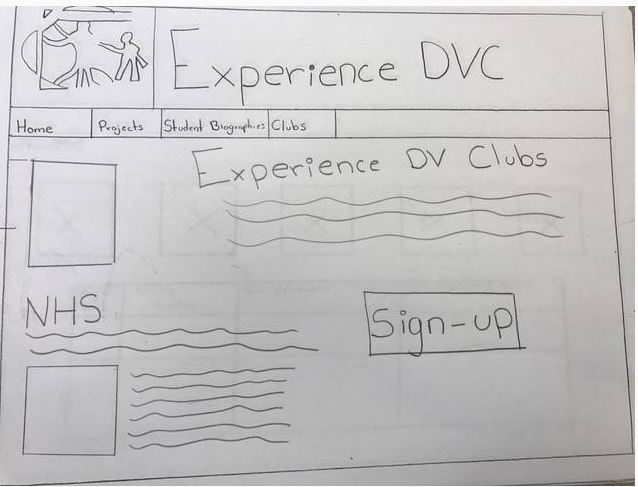 Experience DVC
Home Projects Student Biographies Clubs
Experience DV Clubs
NHS
Sign-up